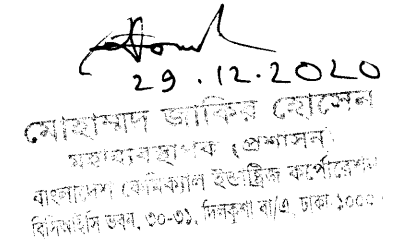 29.12.2020
মোহাম্মদ জাকির হোসেন
মহাব্যবস্থাপক (প্রশাসন)
বাংলাদেশ কেমিক্যাল ইন্ডাষ্ট্রিজ কর্পোরেশন
বিসিআইসি ভবন, ৩০-৩১, দিলকুশা বা/এ, ঢাকা-১০০০